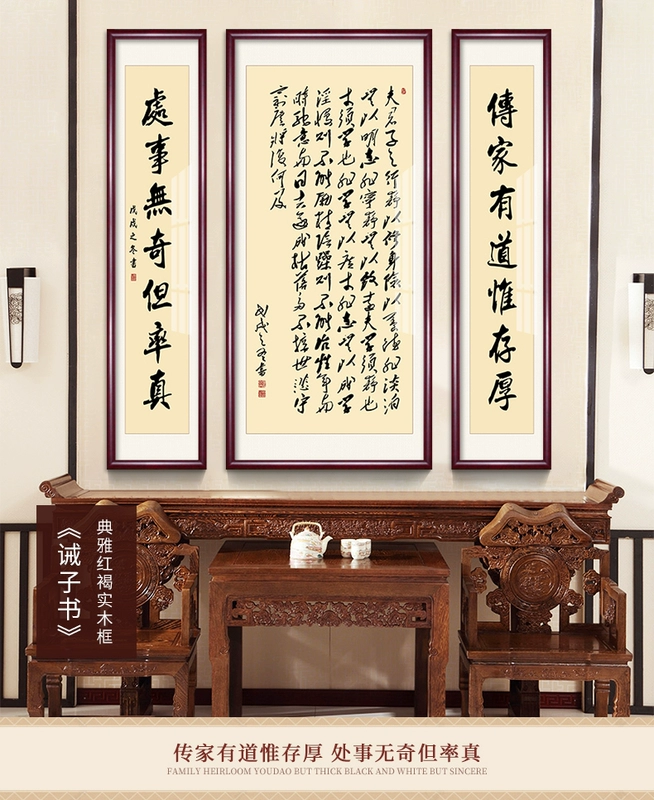 傳家有道惟存厚
夫君子之行靜以修身儉以養德非淡泊
無以明志非寧靜無以致遠夫學須靜也
才須學也非學無以廣才非志無以成學
淫慢則不能勵精險躁則不能冶性年與
時馳意與日去遂成枯落多不接世悲守
窮廬將復何及
戊戌之冬書
處事無奇但率真
戊戌之冬書
典雅红褐实木框
《诫子书》
传家有道惟存厚 处事无奇但率真
FAMILY HEIRLOOM YOUDAO BUT THICK BLACK AND WHITE BUT SINCERE